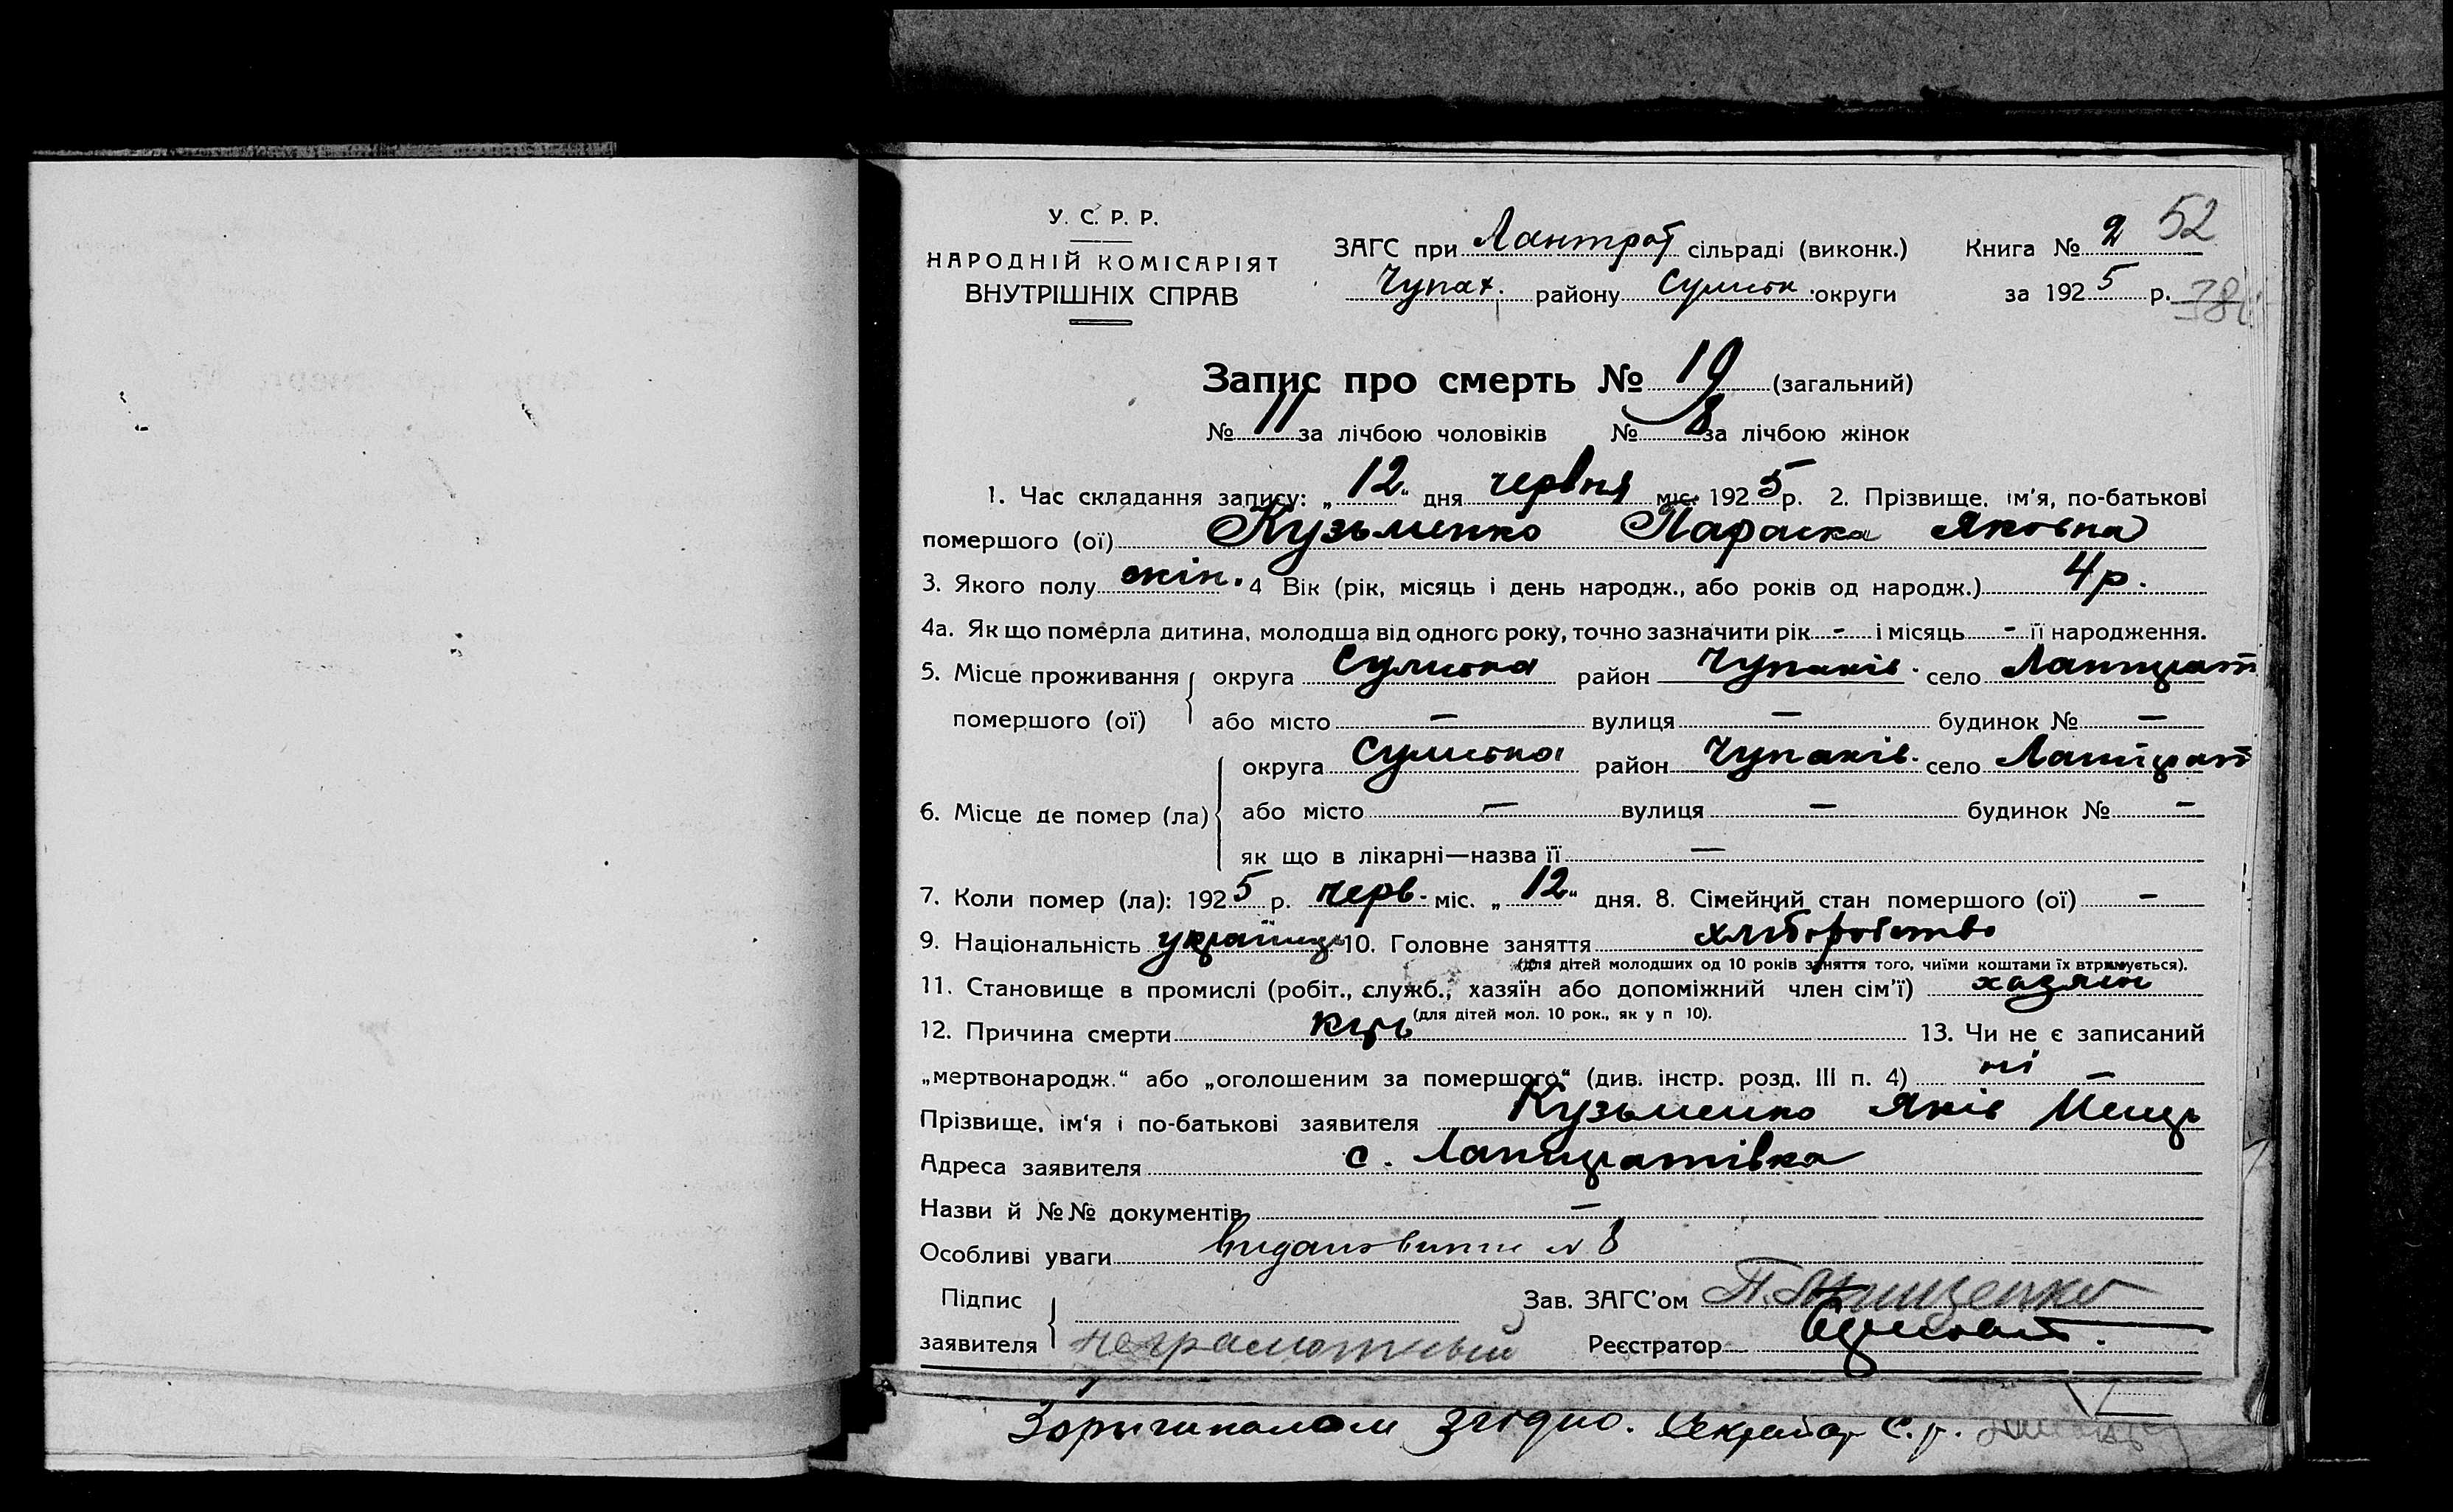 У. С. Р. Р.
НАРОДНІЙ КОМІСАРІЯТ
ВНУТРІШНІХ СПРАВ
ЗАГС при Лантрат сільраді (виконк.) Книга № 2 52
Чупах. району Сумськ округи за 1925 р. 38
Запис про смерть № 19 (загальний)
№ 11 за лічбою чоловіків № 8 за лічбою жінок
1. Час складання запису: „12“ дня червня міс. 1925 р. 2. Прізвище, ім'я, по-батькові
помершого (ої) Кузьменко Параска Яковна
3. Якого полу жін. 4 Вік (рік, місяць і день народж., або років од народж.) 4 р.
4а. Як що померла дитина, молодша від одного року, точно зазначити рік - і місяць - її народження.
5. Місце проживання округа Сумська район Чупахів. село Лантрат
помершого (ої) або місто — вулиця — будинок № —
округа Сумська район Чупахів. село Лантрат
6. Місце де помер (ла) або місто — вулиця — будинок № —
як що в лікарні—назва її —
7. Коли помер (ла): 1925 р. черв. міс. „12“ дня. 8. Сімейний стан помершого (ої) —
9. Національність українць 10. Головне заняття хліборобство
(для дітей молодших од 10 років заняття того, чиїми коштами їх втримується).
11. Становище в промислі (робіт., служб., хазяїн або допоміжний член сім'ї) хазяїн
(для дітей мол. 10 рок., як у п 10).
12. Причина смерти кір 13. Чи не є записаний
„мертвонародж.“ або „оголошеним за помершого“ (див. інстр. розд. III п. 4) ні —
Прізвище, ім'я і по-батькові заявителя Кузьменко Яків
Адреса заявителя с. Лантратівка
Назви й №№ документів —
Особливі уваги № 8
Підпис Зав. ЗАГС'ом
заявителя неграмотный Реєстратор
З оригиналом згідно. Секретар С. р.